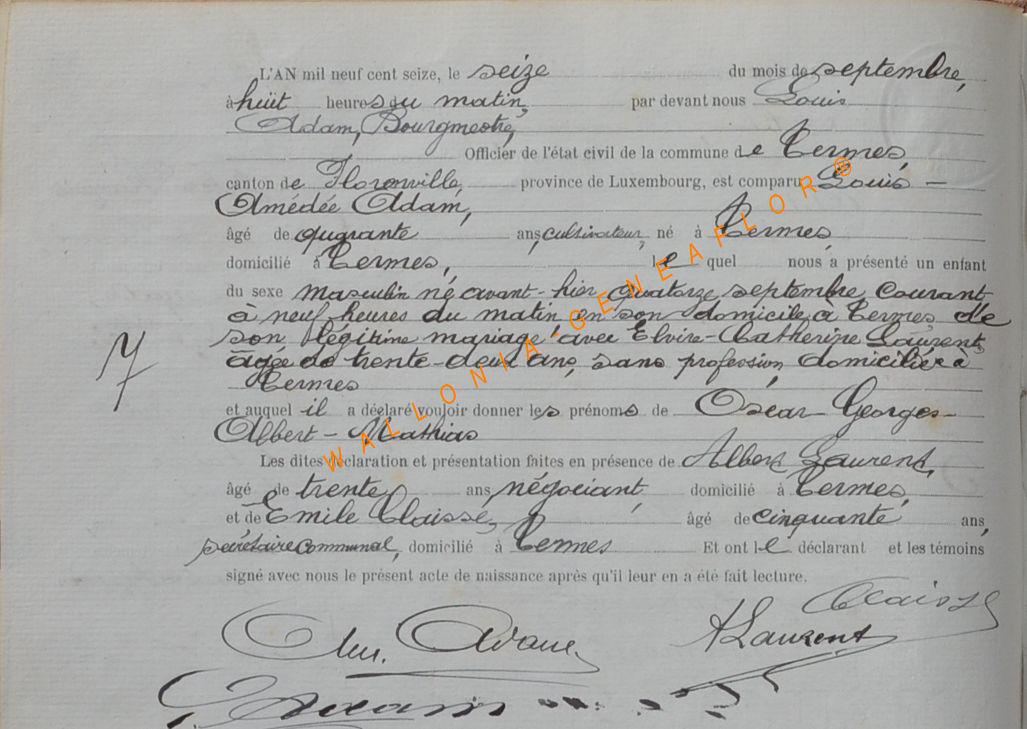 L'AN mil neuf cent seize, le seize du mois de septembre,
à huit heures du matin, par devant nous Louis
Adam, Bourgmestre,
Officier de l'état civil de la commune de Termes,
canton de Florenville, province de Luxembourg, est comparu Louis -
Amédée Adam,
âgé de quarante ans, cultivateur, né à Termes,
domicilié à Termes, lequel nous a présenté un enfant
du sexe masculin né avant-hier quatorze septembre courant
à neuf heures du matin en son domicile à Termes, de
son légitime mariage avec Elvire-Catherine Laurent,
âgée de trente-deux ans, sans profession, domiciliée à
Termes
et auquel il a déclaré vouloir donner les prénoms de Oscar-Georges-
Albert-Mathias
Les dites déclaration et présentation faites en présence de Albert Laurent,
âgé de trente ans, négociant, domicilié à Termes,
et de Emile Claisse, âgé de cinquante ans,
secrétaire communal, domicilié à Termes Et ont le déclarant et les témoins
signé avec nous le présent acte de naissance après qu'il leur en a été fait lecture.
7
Am. Adam. A Laurent Claisse
Adam
WALLONIA GENEAFLOR ®